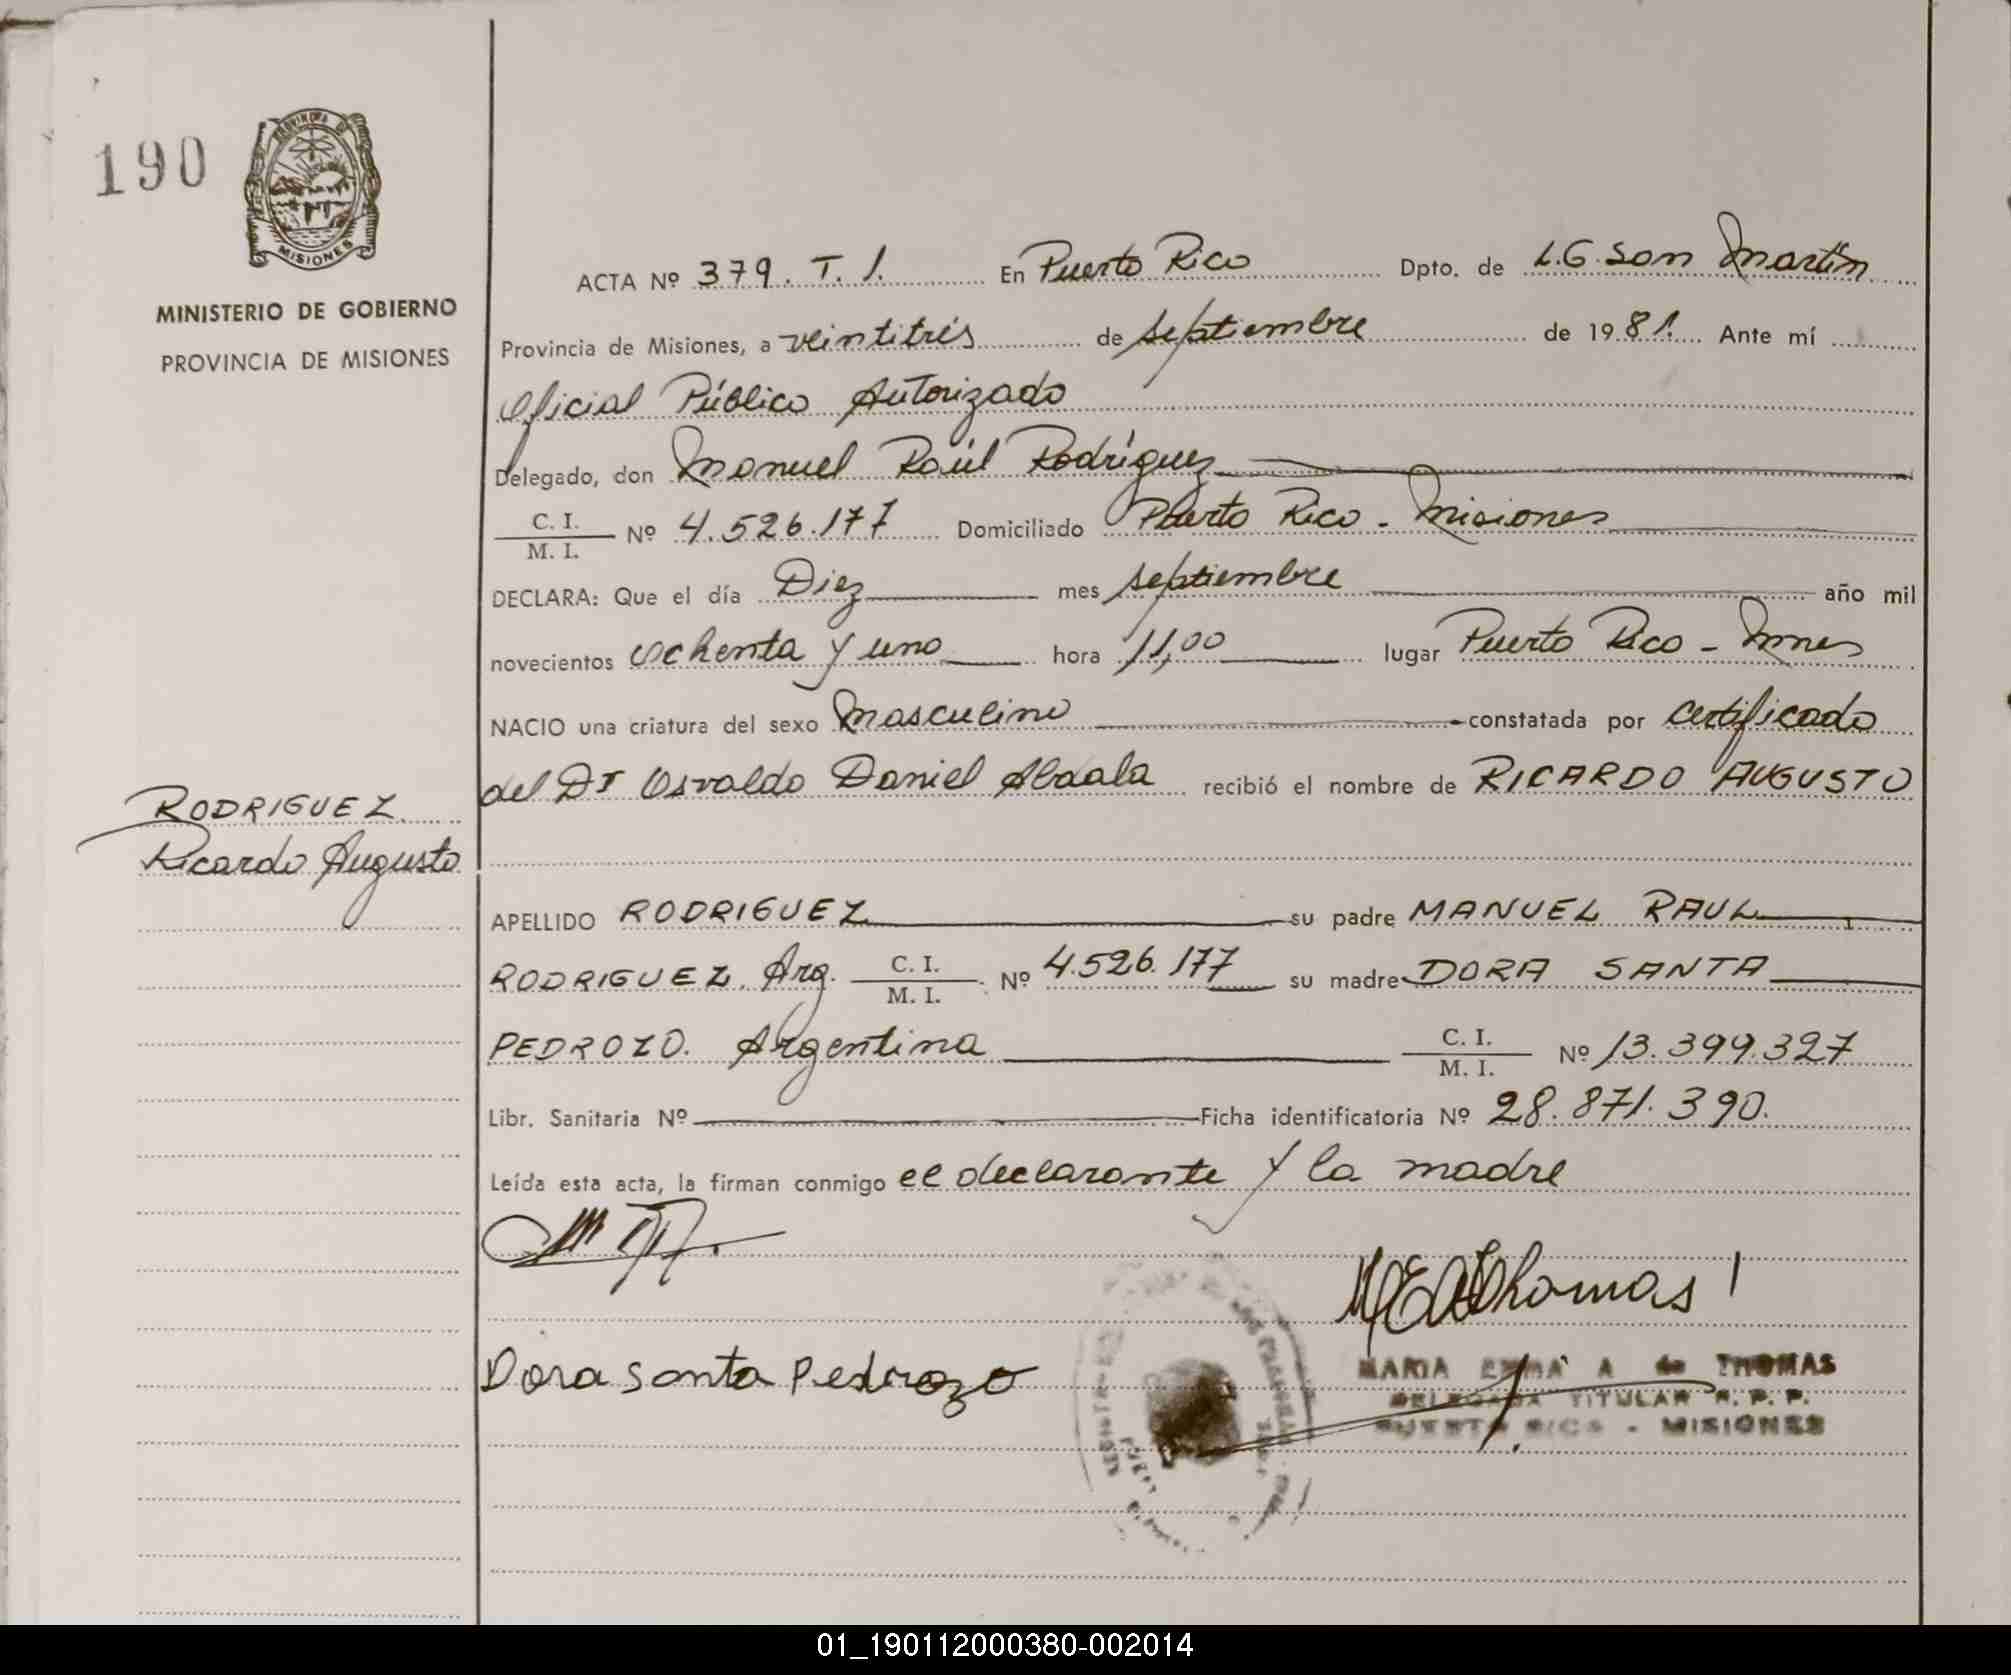 190
PROVINCIA DE
MISIONES
MINISTERIO DE GOBIERNO
PROVINCIA DE MISIONES
ACTA Nº 379. T. 1. En Puerto Rico Dpto. de L.G. San Martín
Provincia de Misiones, a veintitrés de septiembre de 1981. Ante mí
Oficial Público Autorizado
Delegado, don Manuel Raúl Rodríguez
C. I. / M. I. Nº 4.526.177 Domiciliado Puerto Rico - Misiones
DECLARA: Que el día Diez mes septiembre año mil
novecientos ochenta y uno hora 11,00 lugar Puerto Rico - Mnes
NACIO una criatura del sexo Masculino constatada por certificado
del Dr Osvaldo Daniel recibió el nombre de RICARDO AUGUSTO
RODRIGUEZ
Ricardo Augusto
APELLIDO RODRIGUEZ su padre MANUEL RAUL
RODRIGUEZ. Arg. C. I. / M. I. Nº 4.526.177 su madre DORA SANTA
PEDROZO. Argentina C. I. / M. I. Nº 13.399.327
Libr. Sanitaria Nº Ficha identificatoria Nº 28.871.390.
Leída esta acta, la firman conmigo el declarante y la madre
Thomas
Dora Santa Pedrozo
MARIA EMMA A de THOMAS
DELEGADA TITULAR R. P. P.
PUERTO RICO - MISIONES
01_190112000380-002014